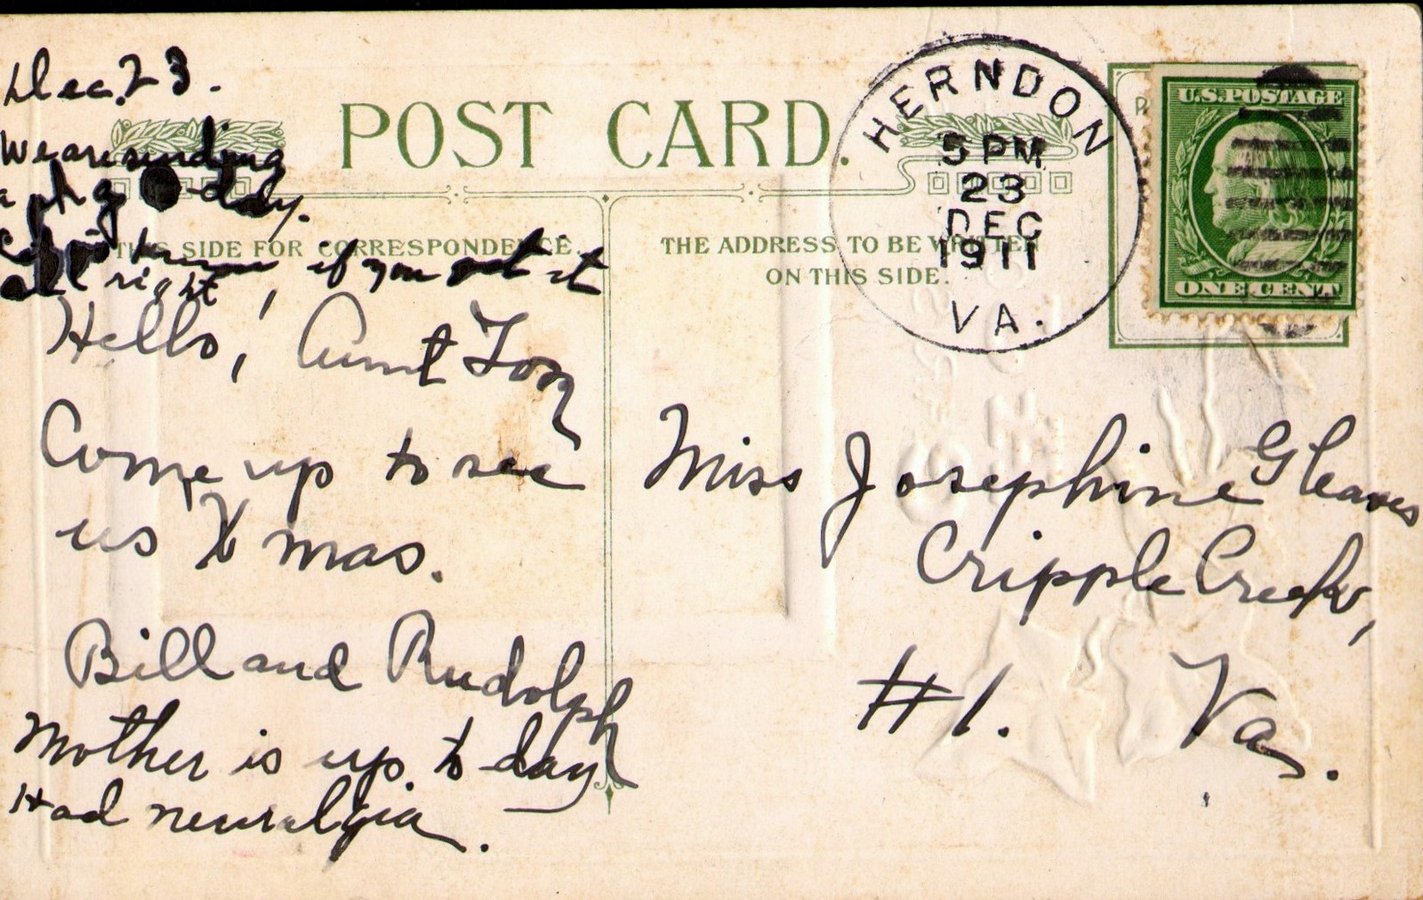 Dec. 23.
We are sending
a pkg to-day.
know if you get it
all right,
Hello, Aunt
Come up to see
us Xmas.
Bill and Rudolph
Mother is up to day
Had neuralgia.
POST CARD.
THIS SIDE FOR CORRESPONDENCE.
THE ADDRESS TO BE WRITTEN
ON THIS SIDE.
HERNDON
5 PM
23
DEC
1911
VA.
U.S. POSTAGE
ONE CENT
Miss Josephine Gleaves
Cripple Creek,
#1. Va.